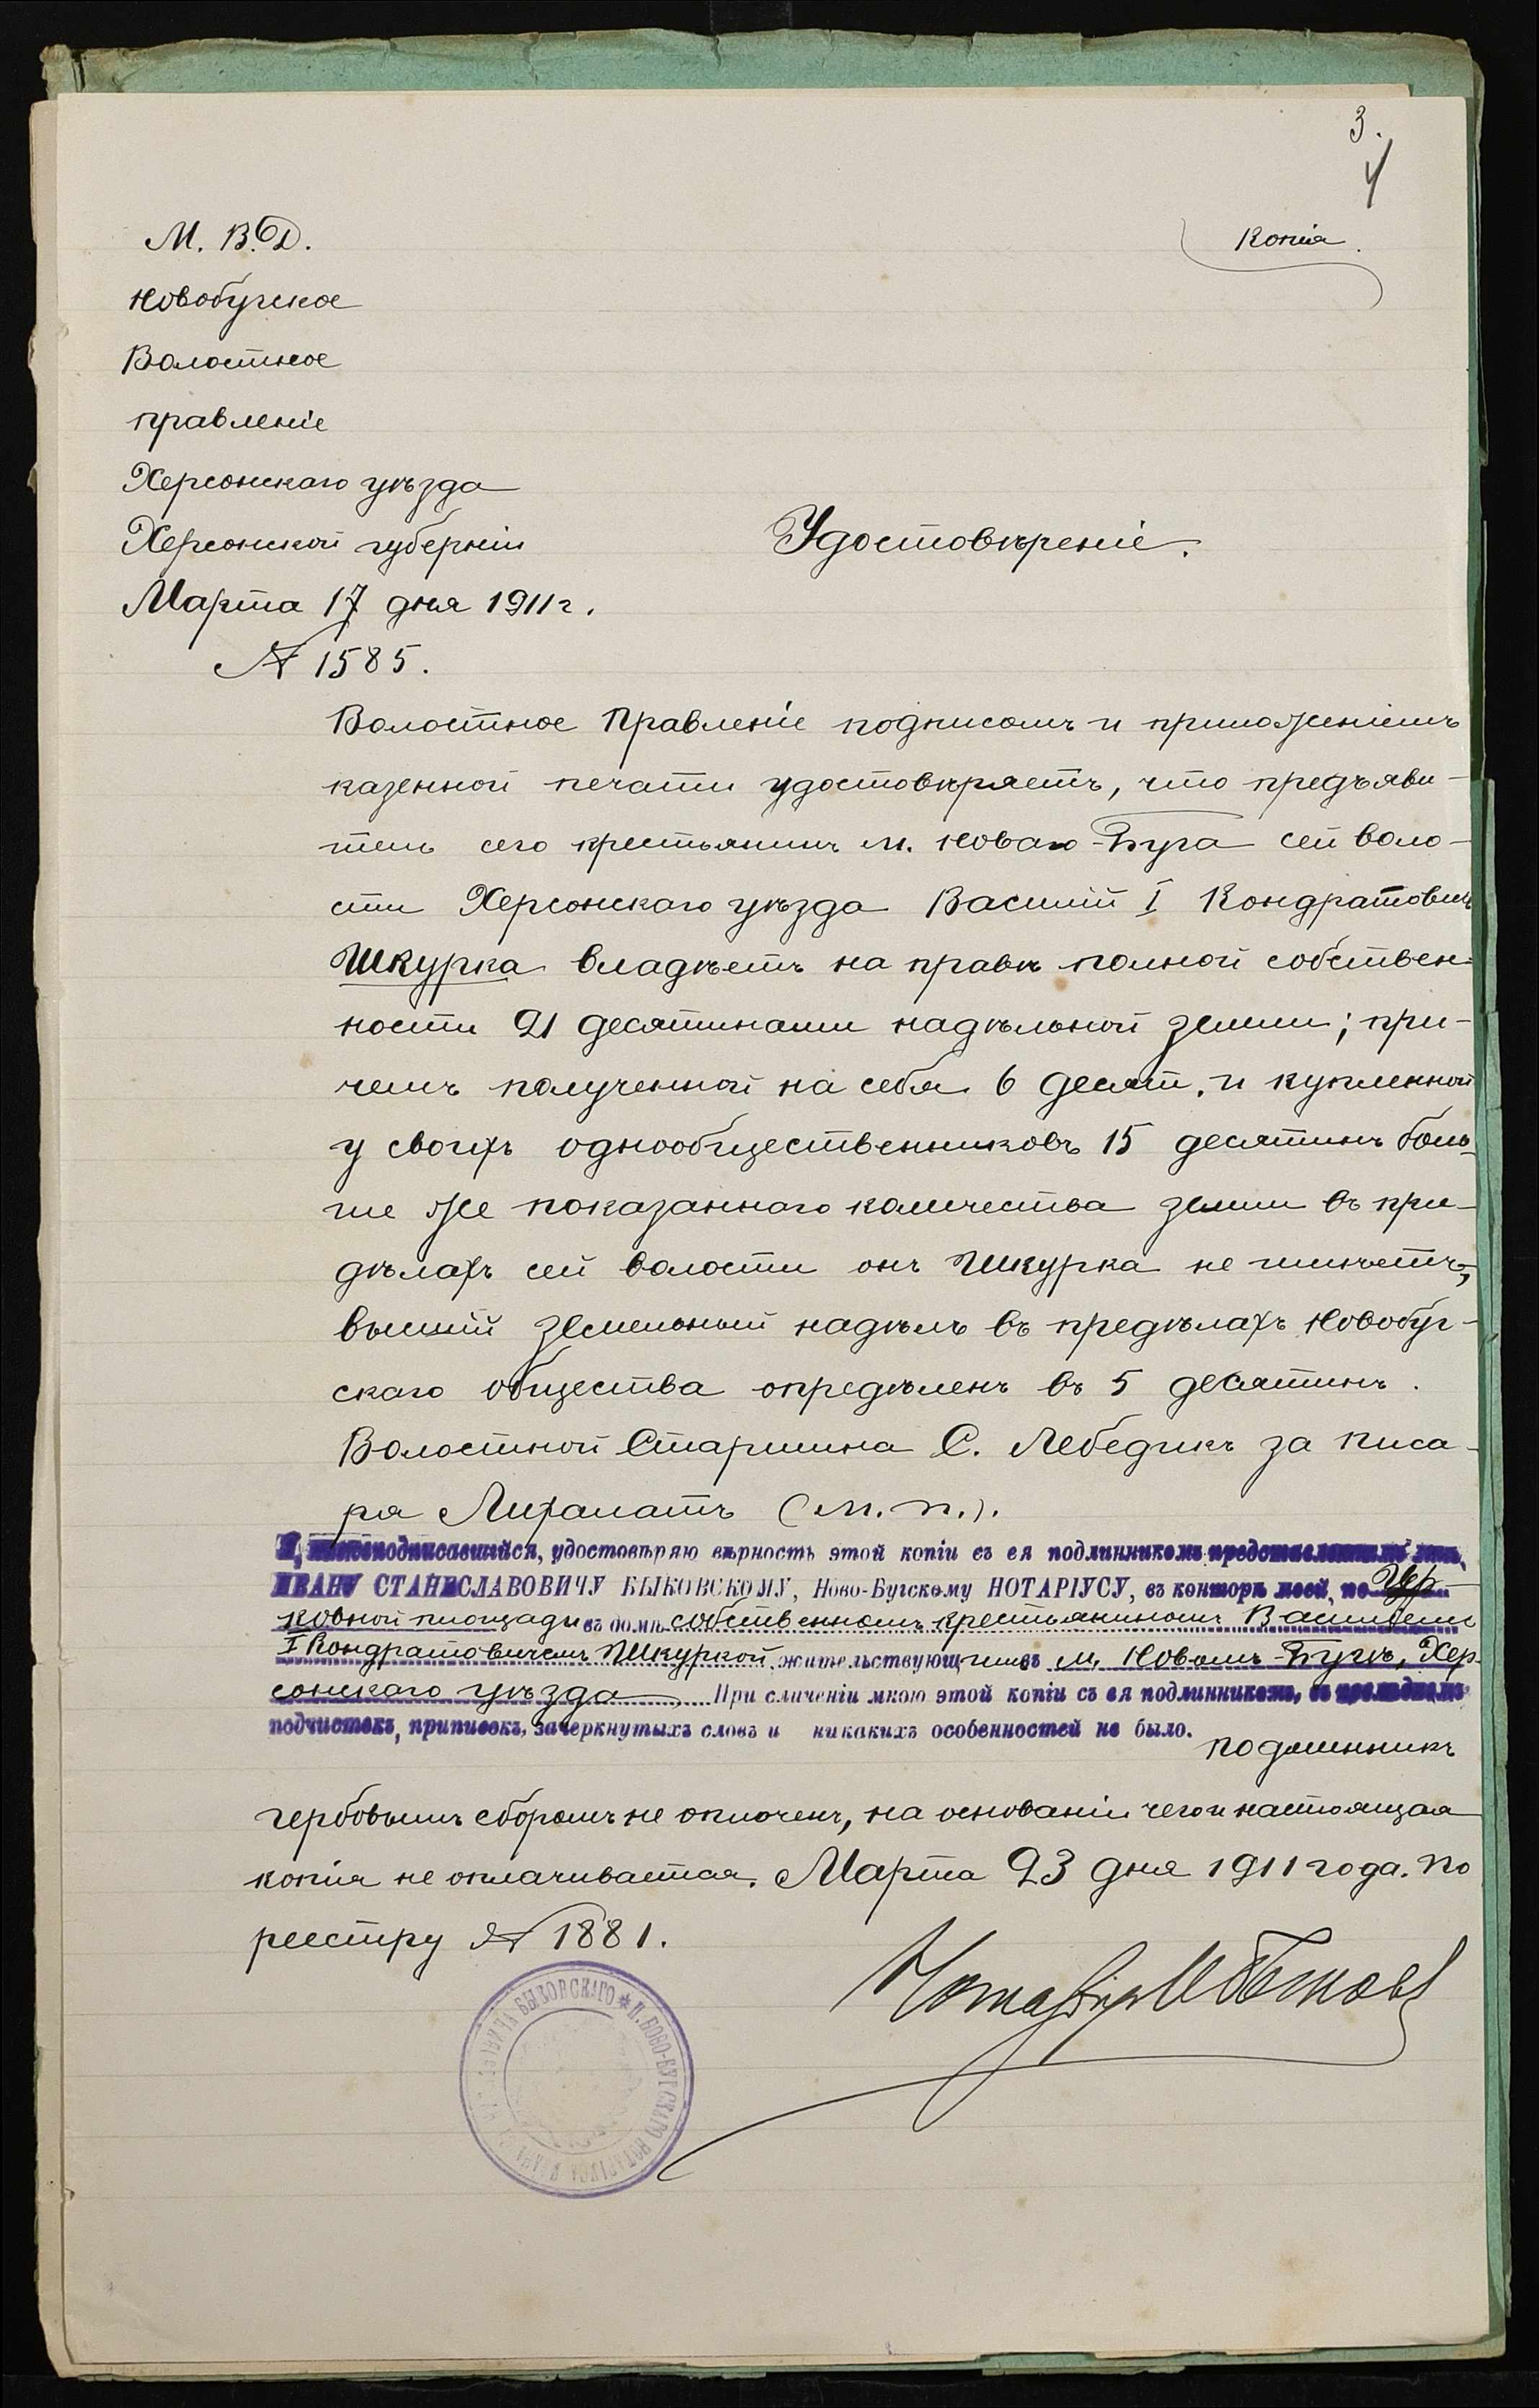 3.
4
М. В. Д.
Копія.
Новобугское
Волостное
правленіе
Херсонскаго уѣзда
Херсонской губерніи
Удостовѣреніе.
Марта 17 дня 1911 г.
№ 1585.
Волостное Правленіе подписомъ и приложеніемъ
казенной печати удостовѣряетъ, что предъяви-
тель сего крестьянинъ м. Новаго-Буга сей воло-
сти Херсонскаго уѣзда Василій I Кондратовичъ
Шкурка владѣетъ на правѣ полной собствен-
ности 21 десятинами надѣльной земли; при-
чемъ полученной на себя 6 десят. и купленной
у своихъ однообщественниковъ 15 десятинъ боль-
ше же показаннаго количества земли въ при-
дѣлахъ сей волости онъ Шкурка не имѣетъ,
высшій земельный надѣлъ въ предѣлахъ Новобуг-
скаго общества опредѣленъ въ 5 десятинъ.
Волостной Старшина С. Лебедикъ за писа-
ря (м. п.).
Я, нижеподписавшійся, удостовѣряю вѣрность этой копіи съ ея подлинникомъ представленнымъ мнѣ,
ИВАНУ СТАНИСЛАВОВИЧУ БЫКОВСКОМУ, Ново-Бугскому НОТАРІУСУ, въ конторѣ моей, по Цер-
ковной площади въ домѣ собственномъ крестьяниномъ Василіемъ
I Кондратовичемъ Шкуркой, жительствующимъ въ м. Новомъ-Бугѣ, Хер-
сонскаго уѣзда При сличеніи мною этой копіи съ ея подлинникомъ, въ послѣднемъ
подчистокъ, приписокъ, зачеркнутыхъ словъ и никакихъ особенностей не было.
подлинникъ
гербовымъ сборомъ не оплоченъ, на основаніи чего и настоящая
копія не оплачивается. Марта 23 дня 1911 года. По
реестру № 1881.
Нотаріусъ
БЫКОВСКАГО * П. НОВО-БУГСКАГО НОТАРІУСА ИВАНА